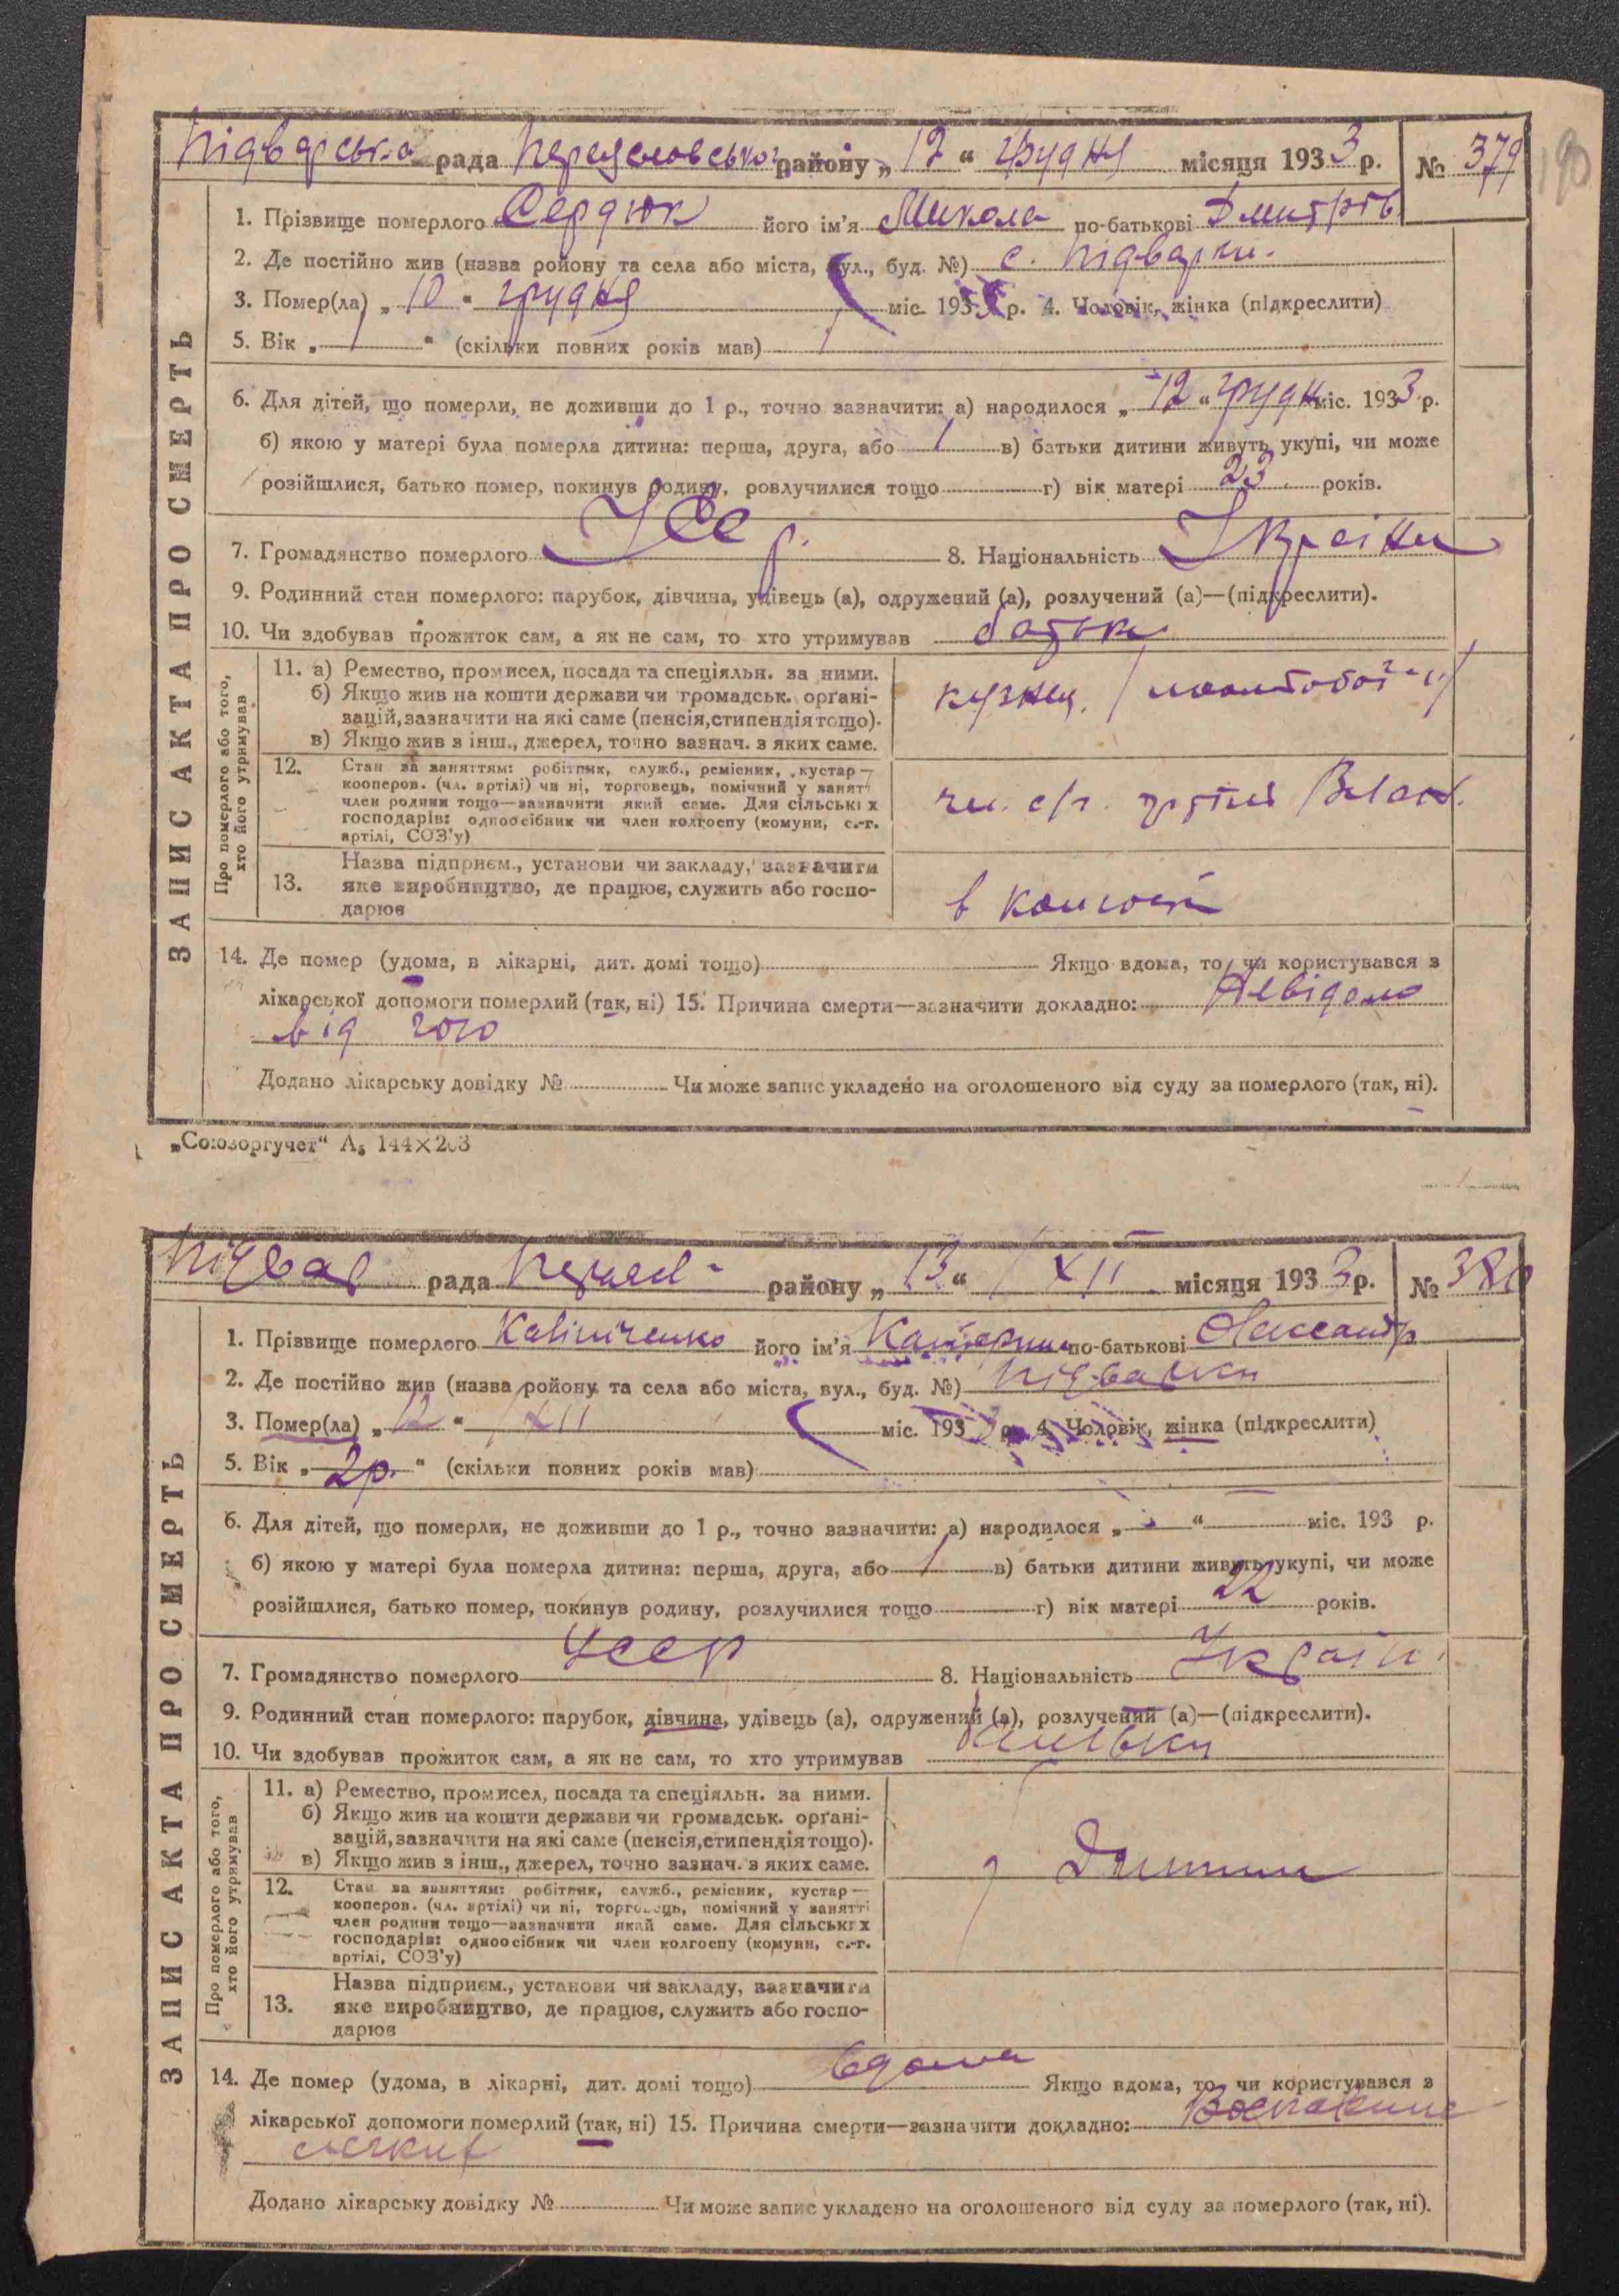 190
Підварська рада Переяславськ району „ 12 “ грудня місяця 1933 р. № 379
ЗАПИС АКТА ПРО СМЕРТЬ
1. Прізвище померлого Сердюк його ім'я Микола по-батькові Дмитрів
2. Де постійно жив (назва ройону та села або міста, вул., буд. №) с. Підварки.
3. Помер(ла) „ 10 “ грудня міс. 1933 р. 4. Чоловік, жінка (підкреслити)
5. Вік „ “ (скільки повних років мав)
6. Для дітей, що померли, не доживши до 1 р., точно зазначити: а) народилося „ 12 “ грудн міс. 1933 р.
б) якою у матері була померла дитина: перша, друга, або 1 в) батьки дитини живуть укупі, чи може
розійшлися, батько помер, покинув родину, розлучилися тощо г) вік матері 23 років.
7. Громадянство померлого УССр. 8. Національність Україн
9. Родинний стан померлого: парубок, дівчина, удівець (а), одружений (а), розлучений (а)—(підкреслити).
10. Чи здобував прожиток сам, а як не сам, то хто утримував батьки
Про померлого або того,
хто його утримував
11. а) Ремество, промисел, посада та спеціяльн. за ними.
б) Якщо жив на кошти держави чи громадськ. орґані-
зацій, зазначити на які саме (пенсія, стипендія тощо).
в) Якщо жив з інш., джерел, точно зазнач. з яких саме.
кузнец молотобоєць
12. Стан за заняттям: робітник, служб., ремісник, кустар—
кооперов. (чл. артілі) чи ні, торговець, помічний у занятті
член родини тощо—зазначити який саме. Для сільських
господарів: одноосібник чи член колгоспу (комуни, с.-г.
артілі, СОЗ'у)
чл. с/г. артілі
13. Назва підприєм., установи чи закладу, зазначити
яке виробництво, де працює, служить або госпо-
дарює
в колгоспі
14. Де помер (удома, в лікарні, дит. домі тощо) Якщо вдома, то чи користувався з
лікарської допомоги померлий (так, ні) 15. Причина смерти—зазначити докладно: Невідомо
від чого
Додано лікарську довідку № Чи може запис укладено на оголошеного від суду за померлого (так, ні).
„Союзоргучет“ А₅ 144×203
Підвар рада Переясл- району „ 13 “ XII місяця 1933 р. № 380
ЗАПИС АКТА ПРО СМЕРТЬ
1. Прізвище померлого Калініченко його ім'я Катерина по-батькові Олександр
2. Де постійно жив (назва ройону та села або міста, вул., буд. №) Підварки
3. Помер(ла) „ 12 “ XII міс. 1933 р. 4. Чоловік, жінка (підкреслити)
5. Вік „ 2р. “ (скільки повних років мав)
6. Для дітей, що померли, не доживши до 1 р., точно зазначити: а) народилося „ “ міс. 193 р.
б) якою у матері була померла дитина: перша, друга, або 1 в) батьки дитини живуть укупі, чи може
розійшлися, батько помер, покинув родину, розлучилися тощо г) вік матері 22 років.
7. Громадянство померлого УССР 8. Національність Україн.
9. Родинний стан померлого: парубок, дівчина, удівець (а), одружений (а), розлучений (а)—(підкреслити).
10. Чи здобував прожиток сам, а як не сам, то хто утримував батьки
Про померлого або того,
хто його утримував
11. а) Ремество, промисел, посада та спеціяльн. за ними.
б) Якщо жив на кошти держави чи громадськ. орґані-
зацій, зазначити на які саме (пенсія, стипендія тощо).
в) Якщо жив з інш., джерел, точно зазнач. з яких саме.
Дитина
12. Стан за заняттям: робітник, служб., ремісник, кустар—
кооперов. (чл. артілі) чи ні, торговець, помічний у занятті
член родини тощо—зазначити який саме. Для сільських
господарів: одноосібник чи член колгоспу (комуни, с.-г.
артілі, СОЗ'у)
13. Назва підприєм., установи чи закладу, зазначити
яке виробництво, де працює, служить або госпо-
дарює
14. Де помер (удома, в лікарні, дит. домі тощо) вдома Якщо вдома, то чи користувався з
лікарської допомоги померлий (так, ні) 15. Причина смерти—зазначити докладно:
Додано лікарську довідку № Чи може запис укладено на оголошеного від суду за померлого (так, ні).